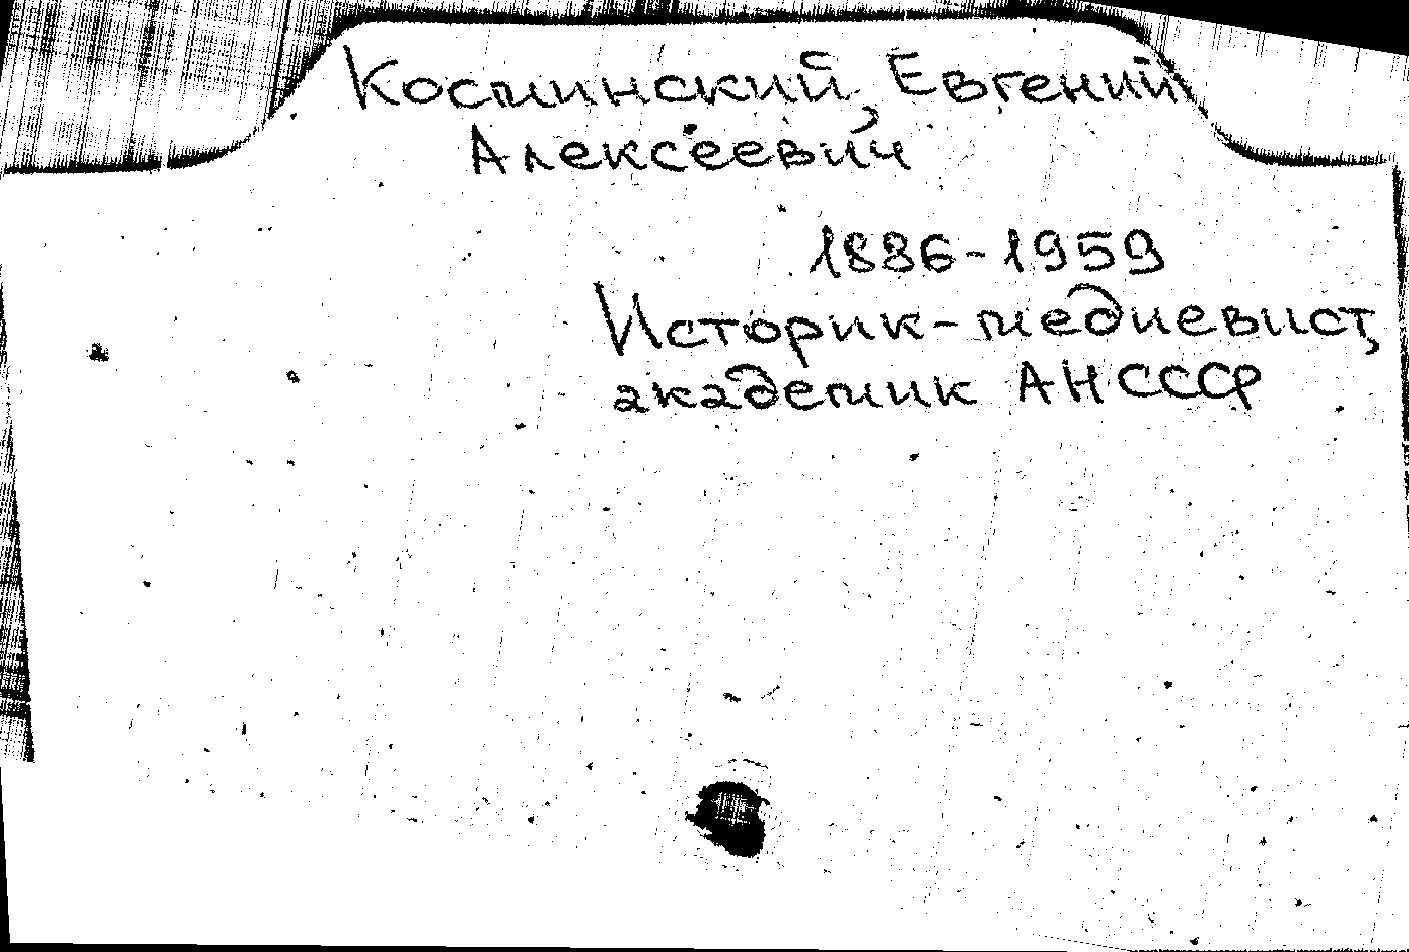 Косминский, Евгений
Алексеевич
1886-1959
Историк-медиевист,
академик АН СССР